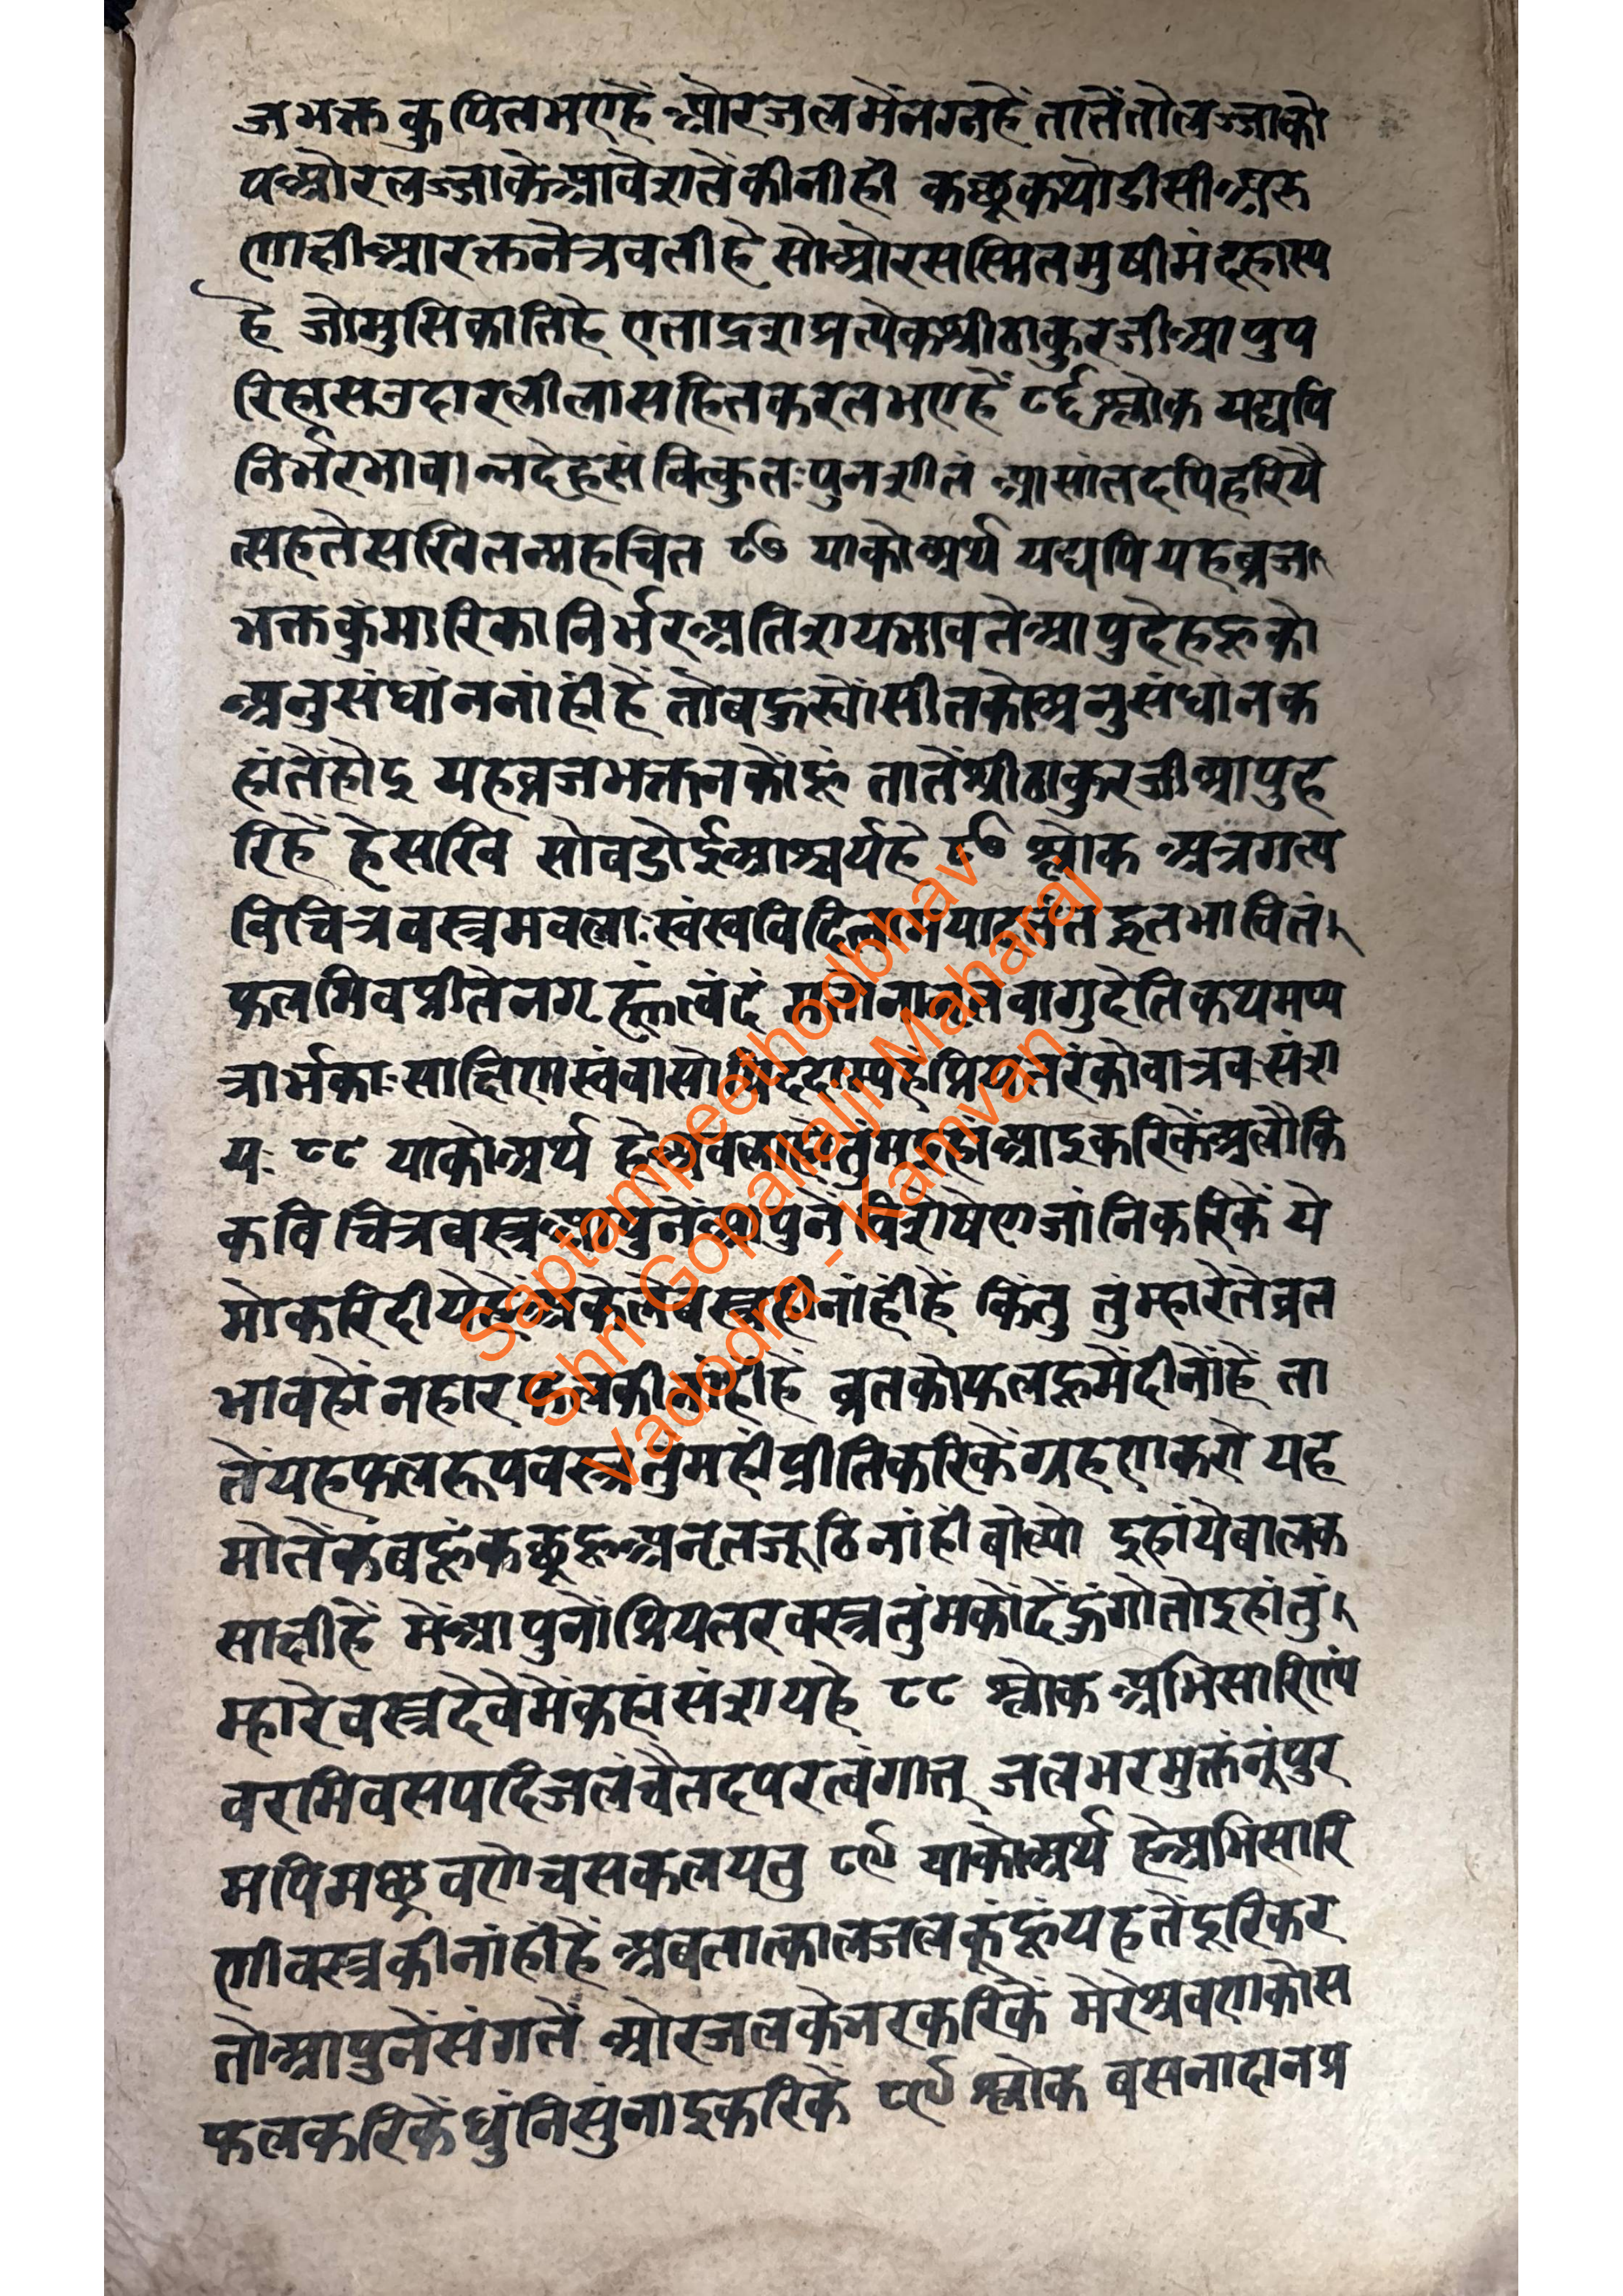 जभक्त कुपितभएहैं और जलमेंनग्नहें तातेंतोलज्जाको
पऔरलज्जाकेआवेशतेंकीनीही कछूकथोडीसीअरु
णाहीआरक्तनेत्रवतीहै सोऔरसस्मितमुषीमंदहास्य
है जोमुसिकातिहै एतादृशप्रत्येकश्रीठाकुरजीआपुप
रिहासउदारलीलासहितकरतभएहें ८६ श्लोक यद्यपि
निर्भरभावान्नदेहसंवित्कुतःपुनःशीतं आसांतदपिहरिर्य
त्सहतेसखितन्महच्चित्रं ८७ याकोअर्थ यद्यपियहब्रज
भक्तकुंमारिकानिर्भरअतिशयभावतेंआपुदेहहूको
अनुसंधांननांहींहैं तोबहुर्‍योंसीतकोअनुसंधानक
हांतेंहोइ यहब्रजभक्तनकोंहूं तातेंश्रीठाकुरजीआपुह
रिहें हेसखि सोवडोईआश्चर्यहै ८७ श्लोक अत्रागत्य
विचित्रवस्त्रमवलाःस्वंस्वंविदित्वामयादत्तंतद्व्रतभावितं
फलमिवप्रीतेनगृह्णंत्विदं मत्तोनानृतवागुदेतिकथमप्य
त्रार्भकाःसाक्षिणःस्वंवासोपिददाम्यहंप्रियतरंकोवात्रवःसंश
यः ८८ याकोअर्थ हेअवलाहोतुंमइहांआइकरिकेंअलौकि
कविचित्रवस्त्रआपुनेंआपुनेंविशेषेणजांनिकरिकें ये
मोकरिदीयेहेंअकेलेवस्त्रहीनांहींहैं किंतु तुंम्हारेतेव्रत
भावहोंनहारफलकीनांहींहैं व्रतकोफलहूमेंदीनोंहें ता
तेंयहफलरूपवस्त्रतुंमहींप्रीतिकरिकेंग्रहणकरो यह
मोतेंकबहूंकछूहूअनृतजूठिनांहींबोल्यो इहांयेबालक
साक्षीहैं मेंआपुनोंप्रियतरवस्त्रतुंमकोंदेंहुंगोतोइहांतुं
म्हारेवस्त्रदेवेमेंकहांसंशयहे ८८ श्लोक अभिसारिण्यं
वरमिवसपदिजलंचैतदपरत्वंगात् जलभरमुक्तंनूंपुर
मपिमछ्रवणेचसकलयतु ८९ याकोअर्थ हेअभिसारि
णीवस्त्रकीनांहींहैं अबतात्कालजलकूंहूंयहतेंदूरिकर
तोआपुनेंसंगतें औरजलकेभरकरिकें मेरेश्रवणकोस
फलकरिकेंधुंनिसुंनाइकरिकें ८९ श्लोक बसनादानप्र
Saptampeethodbhav
Shri Gopallalji Maharaj
Vadodra - Kamvan